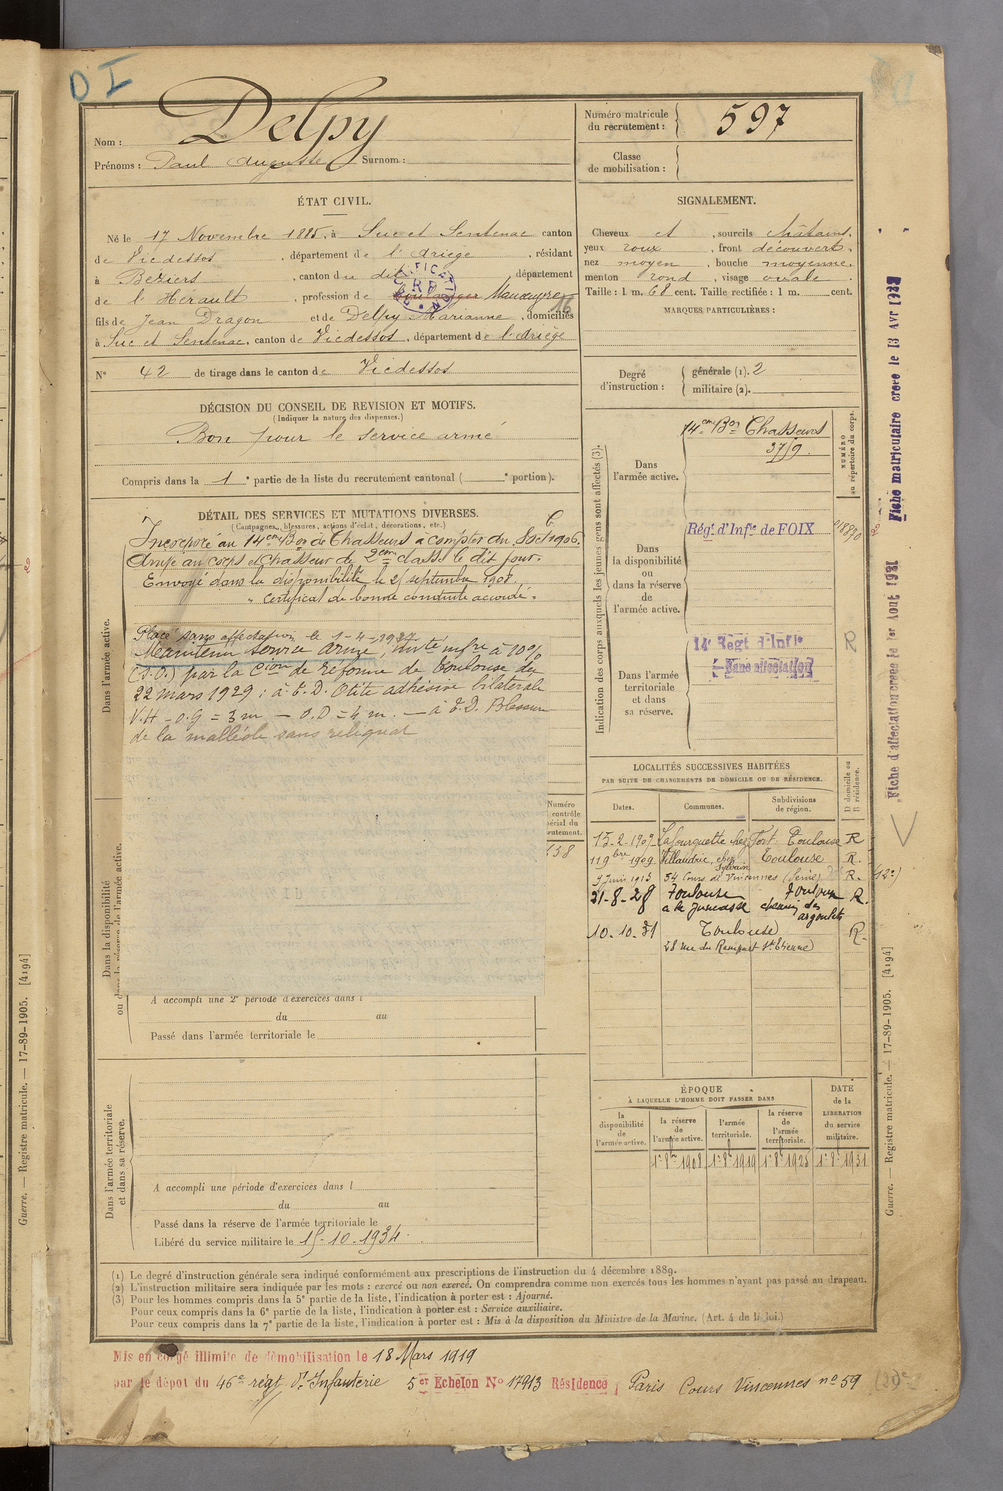 D I
Nom : Delpy
Prénoms : Paul Auguste Surnom :
Numéro matricule du recrutement : 597
Classe de mobilisation :
ÉTAT CIVIL.
Né le 17 Novembre 1885, à Suc et Sentenac canton
de Vicdessos, département de l'Ariège, résidant
à Beziers, canton du dit, département
de l'Hérault, profession de boulanger Manœuvre 16
fils de Jean Dragon et de Delpy Marianne, domiciliés
à Suc et Sentenac, canton de Vicdessos, département de l'Ariège
N° 42 de tirage dans le canton de Vicdessos
SIGNALEMENT.
Cheveux et , sourcils châtains,
yeux roux , front découvert,
nez moyen , bouche moyenne
menton rond , visage ovale.
Taille : 1 m. 68 cent. Taille rectifiée : 1 m. cent.
MARQUES PARTICULIÈRES :
Degré d'instruction : générale (1). 2
militaire (2).
DÉCISION DU CONSEIL DE REVISION ET MOTIFS.
(Indiquer la nature des dispenses.)
Bon pour le service armé
Compris dans la 1e partie de la liste du recrutement cantonal ( e portion).
DÉTAIL DES SERVICES ET MUTATIONS DIVERSES.
(Campagnes, blessures, actions d'éclat, décorations, etc.)
Incorporé au 14em Bon de Chasseurs à compter du 8 Oct 1906.
Arrivé au corps et Chasseur de 2em classe le dit jour.
Envoyé dans la disponibilité le 25 septembre 1908.
" Certificat de bonne conduite accordé.
Placé sans affectation le 1-4-1927
Maintenu service armé, invté infre à 10%
(S.O.) par la Cion de Réforme de Toulouse du
22 mars 1929 : à E.D. Otite adhésive bilatérale
V.H - O.G = 3 m - O.D = 4 m. - à E.D. Blessure
de la malléole sans reliquat
Dans l'armée active.
Dans la disponibilité
ou dans la réserve de l'armée active.
Numéro
158
A accompli une 2e période d'exercices dans l
du au
Passé dans l'armée territoriale le
Dans l'armée territoriale
et dans sa réserve.
A accompli une période d'exercices dans l
du au
Passé dans la réserve de l'armée territoriale le
Libéré du service militaire le 15-10-1934.
Indication des corps auxquels les jeunes gens sont affectés (3).
NUMÉRO au répertoire du corps.
Dans l'armée active.
14em Bon Chasseurs
3719
Dans la disponibilité ou dans la réserve de l'armée active.
Régt d'Infie de FOIX
Dans l'armée territoriale et dans sa réserve.
14e Regt d'Infie
Sans affectation
R
LOCALITÉS SUCCESSIVES HABITÉES
PAR SUITE DE CHANGEMENTS DE DOMICILE OU DE RÉSIDENCE.
Dates. Communes. Subdivisions de région. D domicile ou R résidence.
15-2-1909 Lafourguette Toulouse R
11 9bre 1909 Villaudric, chez Sylvain Toulouse R.
9 Juin 1913 54 Cours de Vincennes (Seine) R. (12e)
21-8-28 Toulouse Toulouse R.
a la Juncasse chemin des argoulets
10-10-31 Toulouse R.
28 rue du Rempart St Etienne
ÉPOQUE À LAQUELLE L'HOMME DOIT PASSER DANS
DATE de la LIBERATION du service militaire.
la disponibilité de l'armée active. la réserve de l'armée active. l'armée territoriale. la réserve de l'armée territoriale.
1er 8re 1908 1er 8re 1919 1er 8re 1925 1er 8re 1931
(1) Le degré d'instruction générale sera indiqué conformément aux prescriptions de l'instruction du 4 décembre 1889.
(2) L'instruction militaire sera indiquée par les mots : exercé ou non exercé. On comprendra comme non exercés tous les hommes n'ayant pas passé au drapeau.
(3) Pour les hommes compris dans la 5e partie de la liste, l'indication à porter est : Ajourné.
Pour ceux compris dans la 6e partie de la liste, l'indication à porter est : Service auxiliaire.
Pour ceux compris dans la 7e partie de la liste, l'indication à porter est : Mis à la disposition du Ministre de la Marine. (Art. 4 de la loi.)
Mis en congé illimité de démobilisation le 18 Mars 1919
par le dépot du 46e régt d'Infanterie 5er Echelon N° 17913 Résidence Paris Cours Vincennes n° 59
Fiche matriculaire créée le 13 Avr 1932
Fiche d'affectation créée le 1er Aout 1931
Guerre. — Registre matricule. — 17-89-1905. [4194]
Guerre. — Registre matricule. — 17-89-1905. [4194]